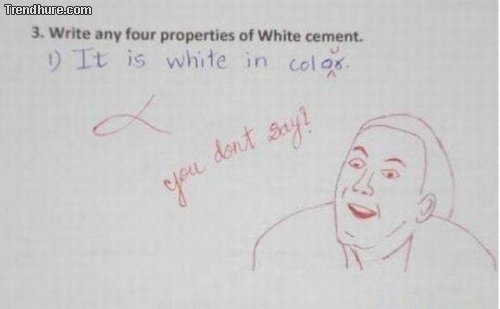 Trendhure.com
3. Write any four properties of White cement.
1) It is white in color.
u
you dont say?